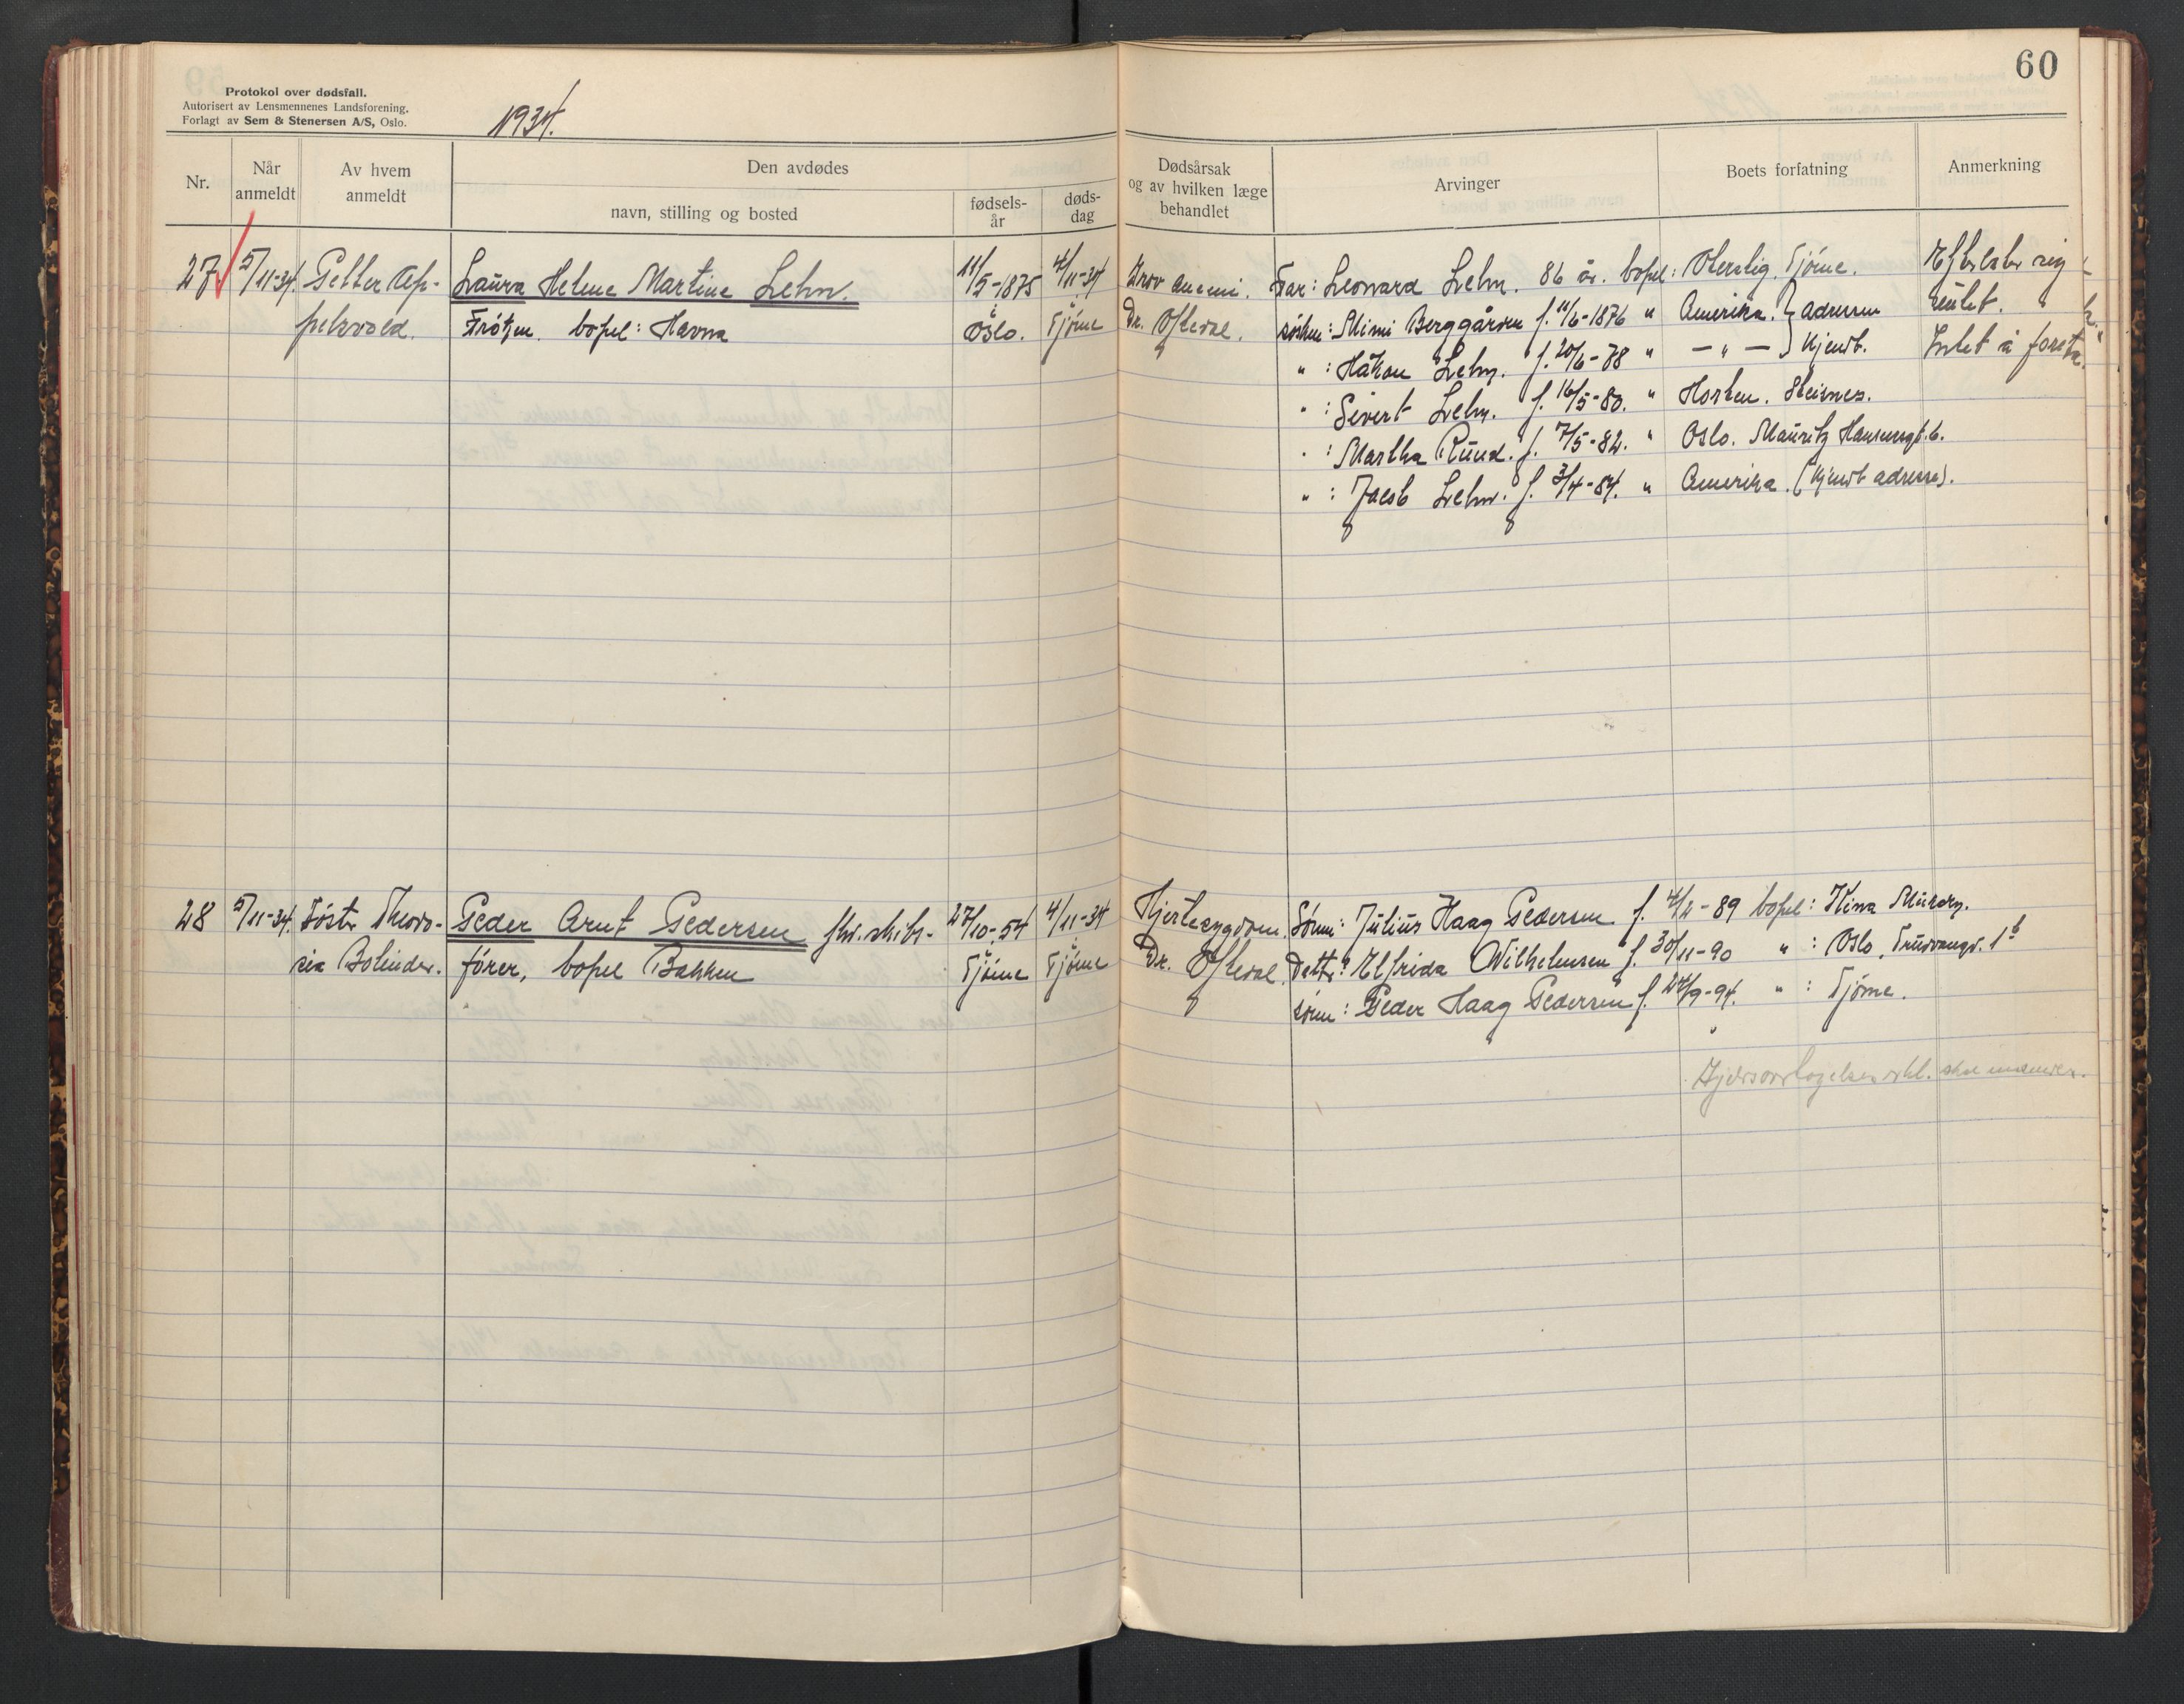 60
Protokol over dødsfall.
Autorisert av Lensmennenes Landsforening.
Forlagt av Sem & Stenersen A/S, Oslo.
1934.
Nr.
Når anmeldt
Av hvem anmeldt
Den avdødes
navn, stilling og bosted
fødsels-år
døds-dag
Dødsårsak og av hvilken læge behandlet
Arvinger
Boets forfatning
Anmerkning
27 5/11-34. Petter Ap- Laura Helene Martine Lehn. 11/5-1875 4/11-34 anemi. Far: Leonard Lehn. 86 år. bopel: Tjøme. Efterlater sig
pelsvold. Frøken. bopel: Havna Oslo. Tjøme Dr. Ofterdal. søsken: Mimi Berggården f. 11/6-1876 " Amerika. } adressen intet.
" : Håkon Lehn. f. 20/6-78 " — " — } kjendt. Intet å foreta.
" : Sivert Lehn. f. 16/5-80. " Horten. Steisnes.
" : Martha Ruud. f. 7/5-82. " Oslo. Mauritz Hansensgt. 6.
" : Jacob Lehn. f. 3/4-84. " Amerika. (kjendt adresse).
28 5/11-34. Fóstr Theodo- Peder Arnt Pedersen fhv. skibs- 27/10-54 4/11-34 Hjertesygdom. Sønn: Julius Haag Pedersen f. 4/2-89 bopel: Kina
sia Bolinder. fører, bopel Bakken Tjøme Tjøme Dr. Ofterdal. Dattr: Elfrida Wilhelmsen f. 30/11-90 " : Oslo,
sønn: Peder Haag Pedersen f. 24/9-94. " : Tjøme.
Gjeldsovertagelses erkl. skal innsendes.